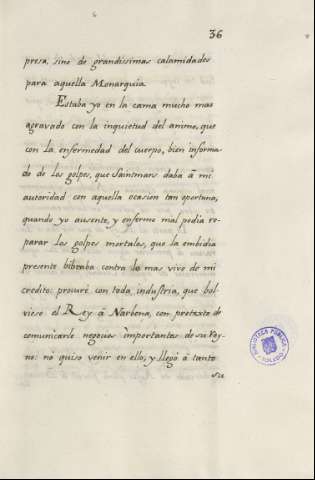 36
presa, sino de grandissimas calamidades
para aquella Monarquia.
Estaba yo en la cama mucho mas
agravado con la inquietud del animo, que
con la enfermedad del cuerpo, bien informa-
do de los golpes, que Saintmars daba à mi
autoridad con aquella ocasion tan oportuna,
quando yo ausente, y enfermo mal podia re-
parar los golpes mortales, que la embidia
presente bibraba contra lo mas vivo de mi
credito: procurè con toda industria, que bol-
viese el Rey à Narbona, con pretexto de
comunicarle negocios importantes de su Rey-
no: no quiso venir en ello, y llegó à tanto
su
BIBLIOTECA PUBLICA
TOLEDO